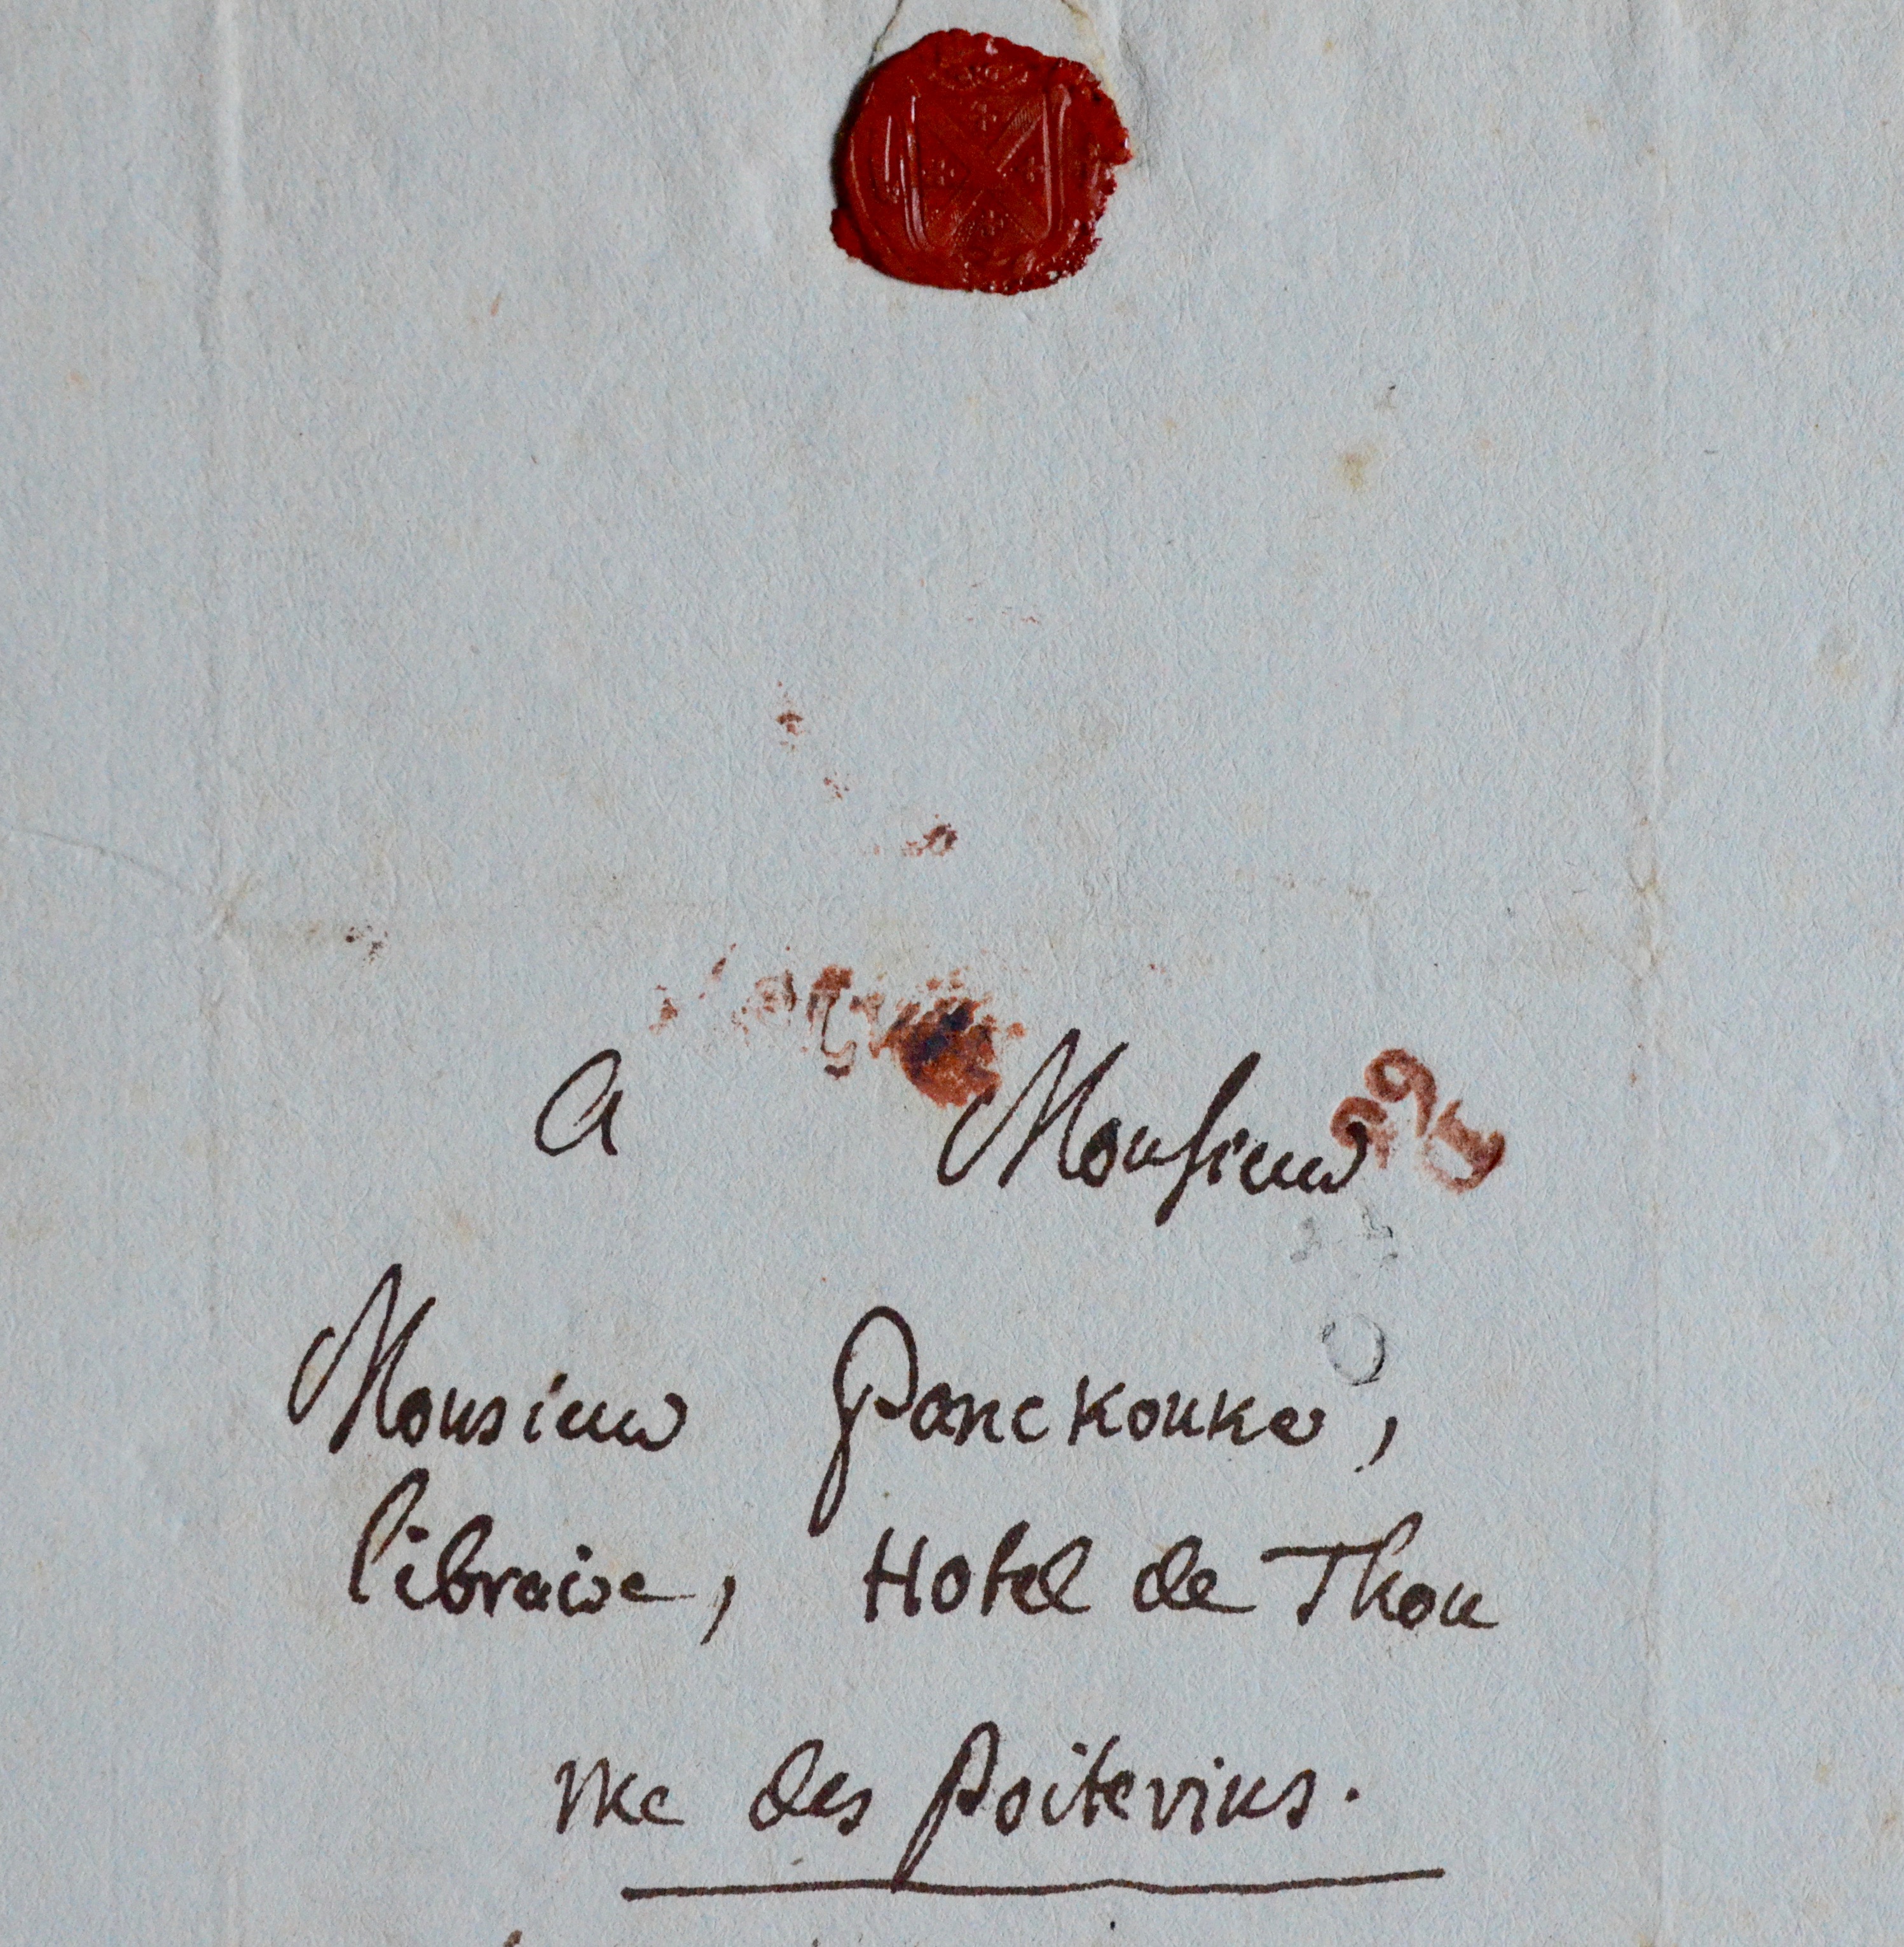 A Monsieur
Monsieur Panckouke,
libraire, Hotel de Thou
rue des Poitevins.